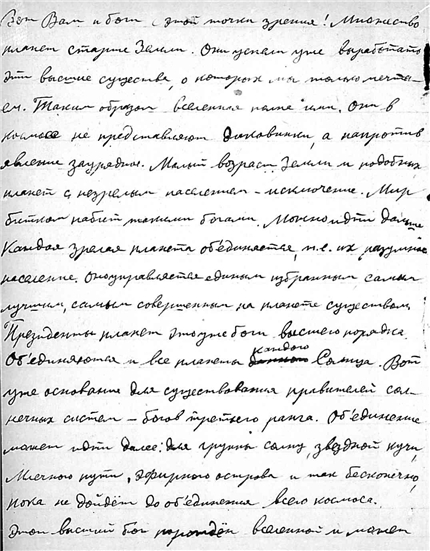 Вот Вам и боги с этой точки зрения! Множество
планет старше Земли. Они успели уже выработать
эти высшие существа, о которых мы только мечта-
ем. Таким образом вселенная полна ими. Они в
космосе не представляют диковинки, а напротив
явление заурядное. Малый возраст Земли и подобных
планет с незрелым населением – исключение. Мир
битком набит такими богами. Можно идти дальше
Каждая зрелая планета объединяется, т.е. их разумное
население. Оно управляется единым избранным самым
лучшим, самым совершенным на планете существом.
Президенты планет это уже боги высшего порядка.
Об'единяются и все планеты каждого Солнца. Вот
уже основание для существования правителей сол-
нечных систем – богов третьего ранга. Об'единение
может идти далее: для группы солнц, звездной кучи,
Млечного пути, эфирного острова и так бесконечно,
пока не дойдём до об'единения всего космоса.
Этот высший бог порождён вселенной и может